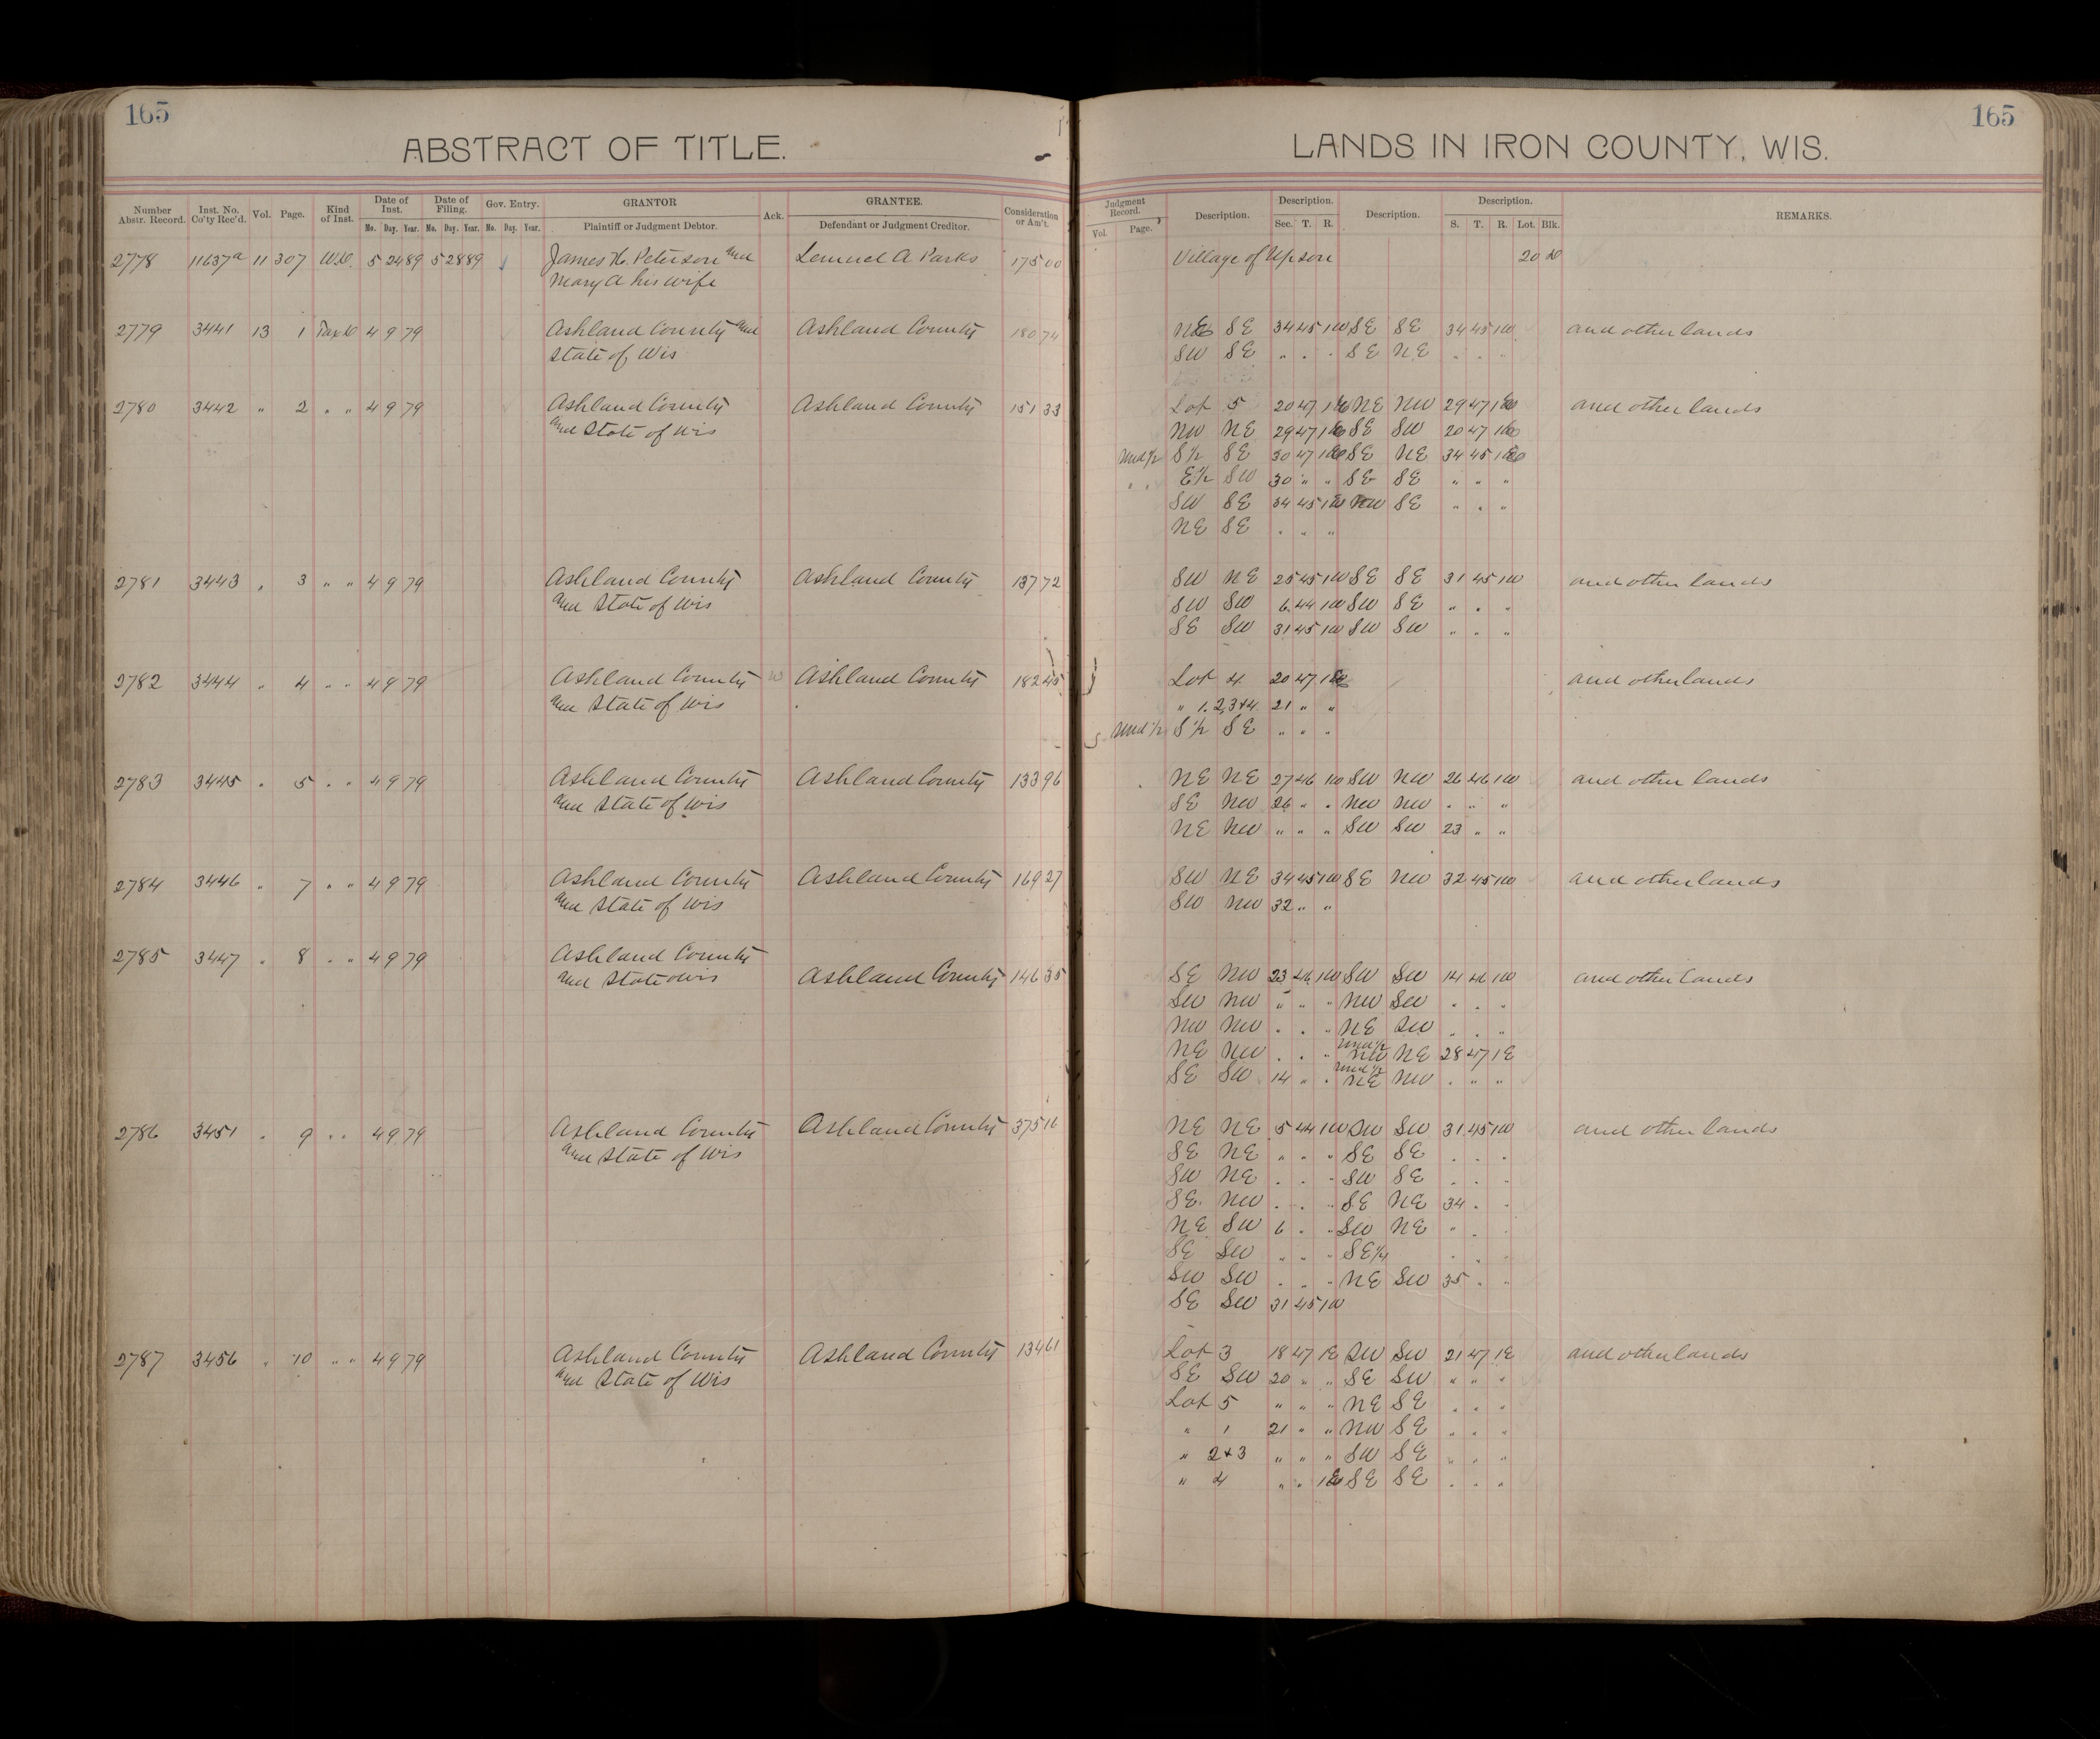 165
165
ABSTRACT OF TITLE.
LANDS IN IRON COUNTY, WIS.
Number Abstr. Record. Inst. No. Co'ty Rec'd. Vol. Page. Kind of Inst. Date of Inst. Mo. Day. Year. Date of Filing. Mo. Day. Year. Gov. Entry. Mo. Day. Year. GRANTOR Plaintiff or Judgment Debtor. Ack. GRANTEE. Defendant or Judgment Creditor. Consideration or Am't.
Judgment Record. Vol. Page. Description. Description. Sec. T. R. Description. Description. S. T. R. Lot. Blk. REMARKS.
2778 11637a 11 307 W.D. 5 24 89 5 28 89 James H. Peterson and Lemuel A Parks 175 00 Village of Upson 20
Mary A his wife
2779 3441 13 1 Tax D 4 9 79 Ashland County and Ashland County 180 74 NE SE 34 45 1W SE SE 34 45 1W and other lands
State of Wis SW SE " " " SE NE " " "
2780 3442 " 2 " " 4 9 79 Ashland County Ashland County 151 33 Lot 5 20 47 1E NE NW 29 47 1E and other lands
and State of Wis NW NE 29 47 1E SE SW 20 47 1E
und 1/2 S 1/2 SE 30 47 1E SE NE 34 45
" " E 1/2 SW 30 " " SE SE " " "
SW SE 34 45 1W NW SE " " "
NE SE " " "
2781 3443 " 3 " " 4 9 79 Ashland County Ashland County 137 72 SW NE 25 45 1W SE SE 31 45 1W and other lands
and State of Wis SW SW 6 44 1W SW SE " " "
SE SW 31 45 1W SW SW " " "
2782 3444 " 4 " " 4 9 79 Ashland County Ashland County 182 45 Lot 4 20 47 1E and other lands
and State of Wis " 1. 2, 3 & 4 21 " "
und 1/2 S 1/2 SE " " "
2783 3445 " 5 " " 4 9 79 Ashland County Ashland County 133 96 NE NE 27 46 1W SW NW 26 46 1W and other lands
and State of Wis SE NW 26 " " NW NW " " "
NE NW " " " SW SW 23 " "
2784 3446 " 7 " " 4 9 79 Ashland County Ashland County 169 27 SW NE 34 45 1W SE NW 32 45 1W and other lands
and State of Wis SW NW 32 " "
2785 3447 " 8 " " 4 9 79 Ashland County
and State o Wis Ashland County 146 35 SE NW 23 46 1W SW SW 14 46 1W and other lands
SW NW " " " NW SW " " "
NW NW " " " NE SW " " "
NE NW " " " und 1/2 NW NE 28 47 1E
SE SW 14 " " und 1/2 NE NW " " "
2786 3451 " 9 " " 4 9 79 Ashland County Ashland County 375 16 NE NE 5 44 1W SW SW 31 45 1W and other lands
and State of Wis SE NE " " " SE SE " " "
SW NE " " " SW SE " " "
SE NW " " " SE NE 34 " "
NE SW 6 " " SW NE " " "
SE SW " " " SE 1/4 " "
SW SW " " " NE SW 35 " "
SE SW 31 45 1W
2787 3456 " 10 " " 4 9 79 Ashland County Ashland County 134 61 Lot 3 18 47 1E SW SW 21 47 1E and other lands
and State of Wis SE SW 20 " " SE SW " " "
Lot 5 " " " NE SE " " "
" 1 21 " " NW SE " " "
" 2 & 3 " " " SW SE " " "
" 4 " " 1E SE SE " " "